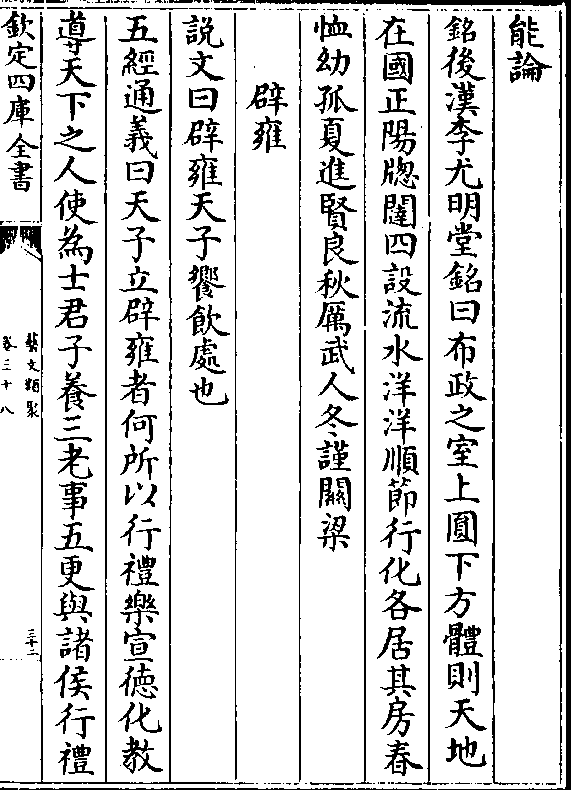 能論
銘後漢李尤明堂銘曰布政之室上圎下方體則天地
在國正陽牎闥四設流水洋洋順節行化各居其房春
恤幼孤夏進賢良秋厲武人冬謹關梁
辟雍
説文曰辟雍天子饗飲處也
五經通義曰天子立辟雍者何所以行禮樂宣徳化教
導天下之人使為士君子養三老事五更與諸侯行禮
欽定四庫全書
藝文類聚
卷三十八
三十二